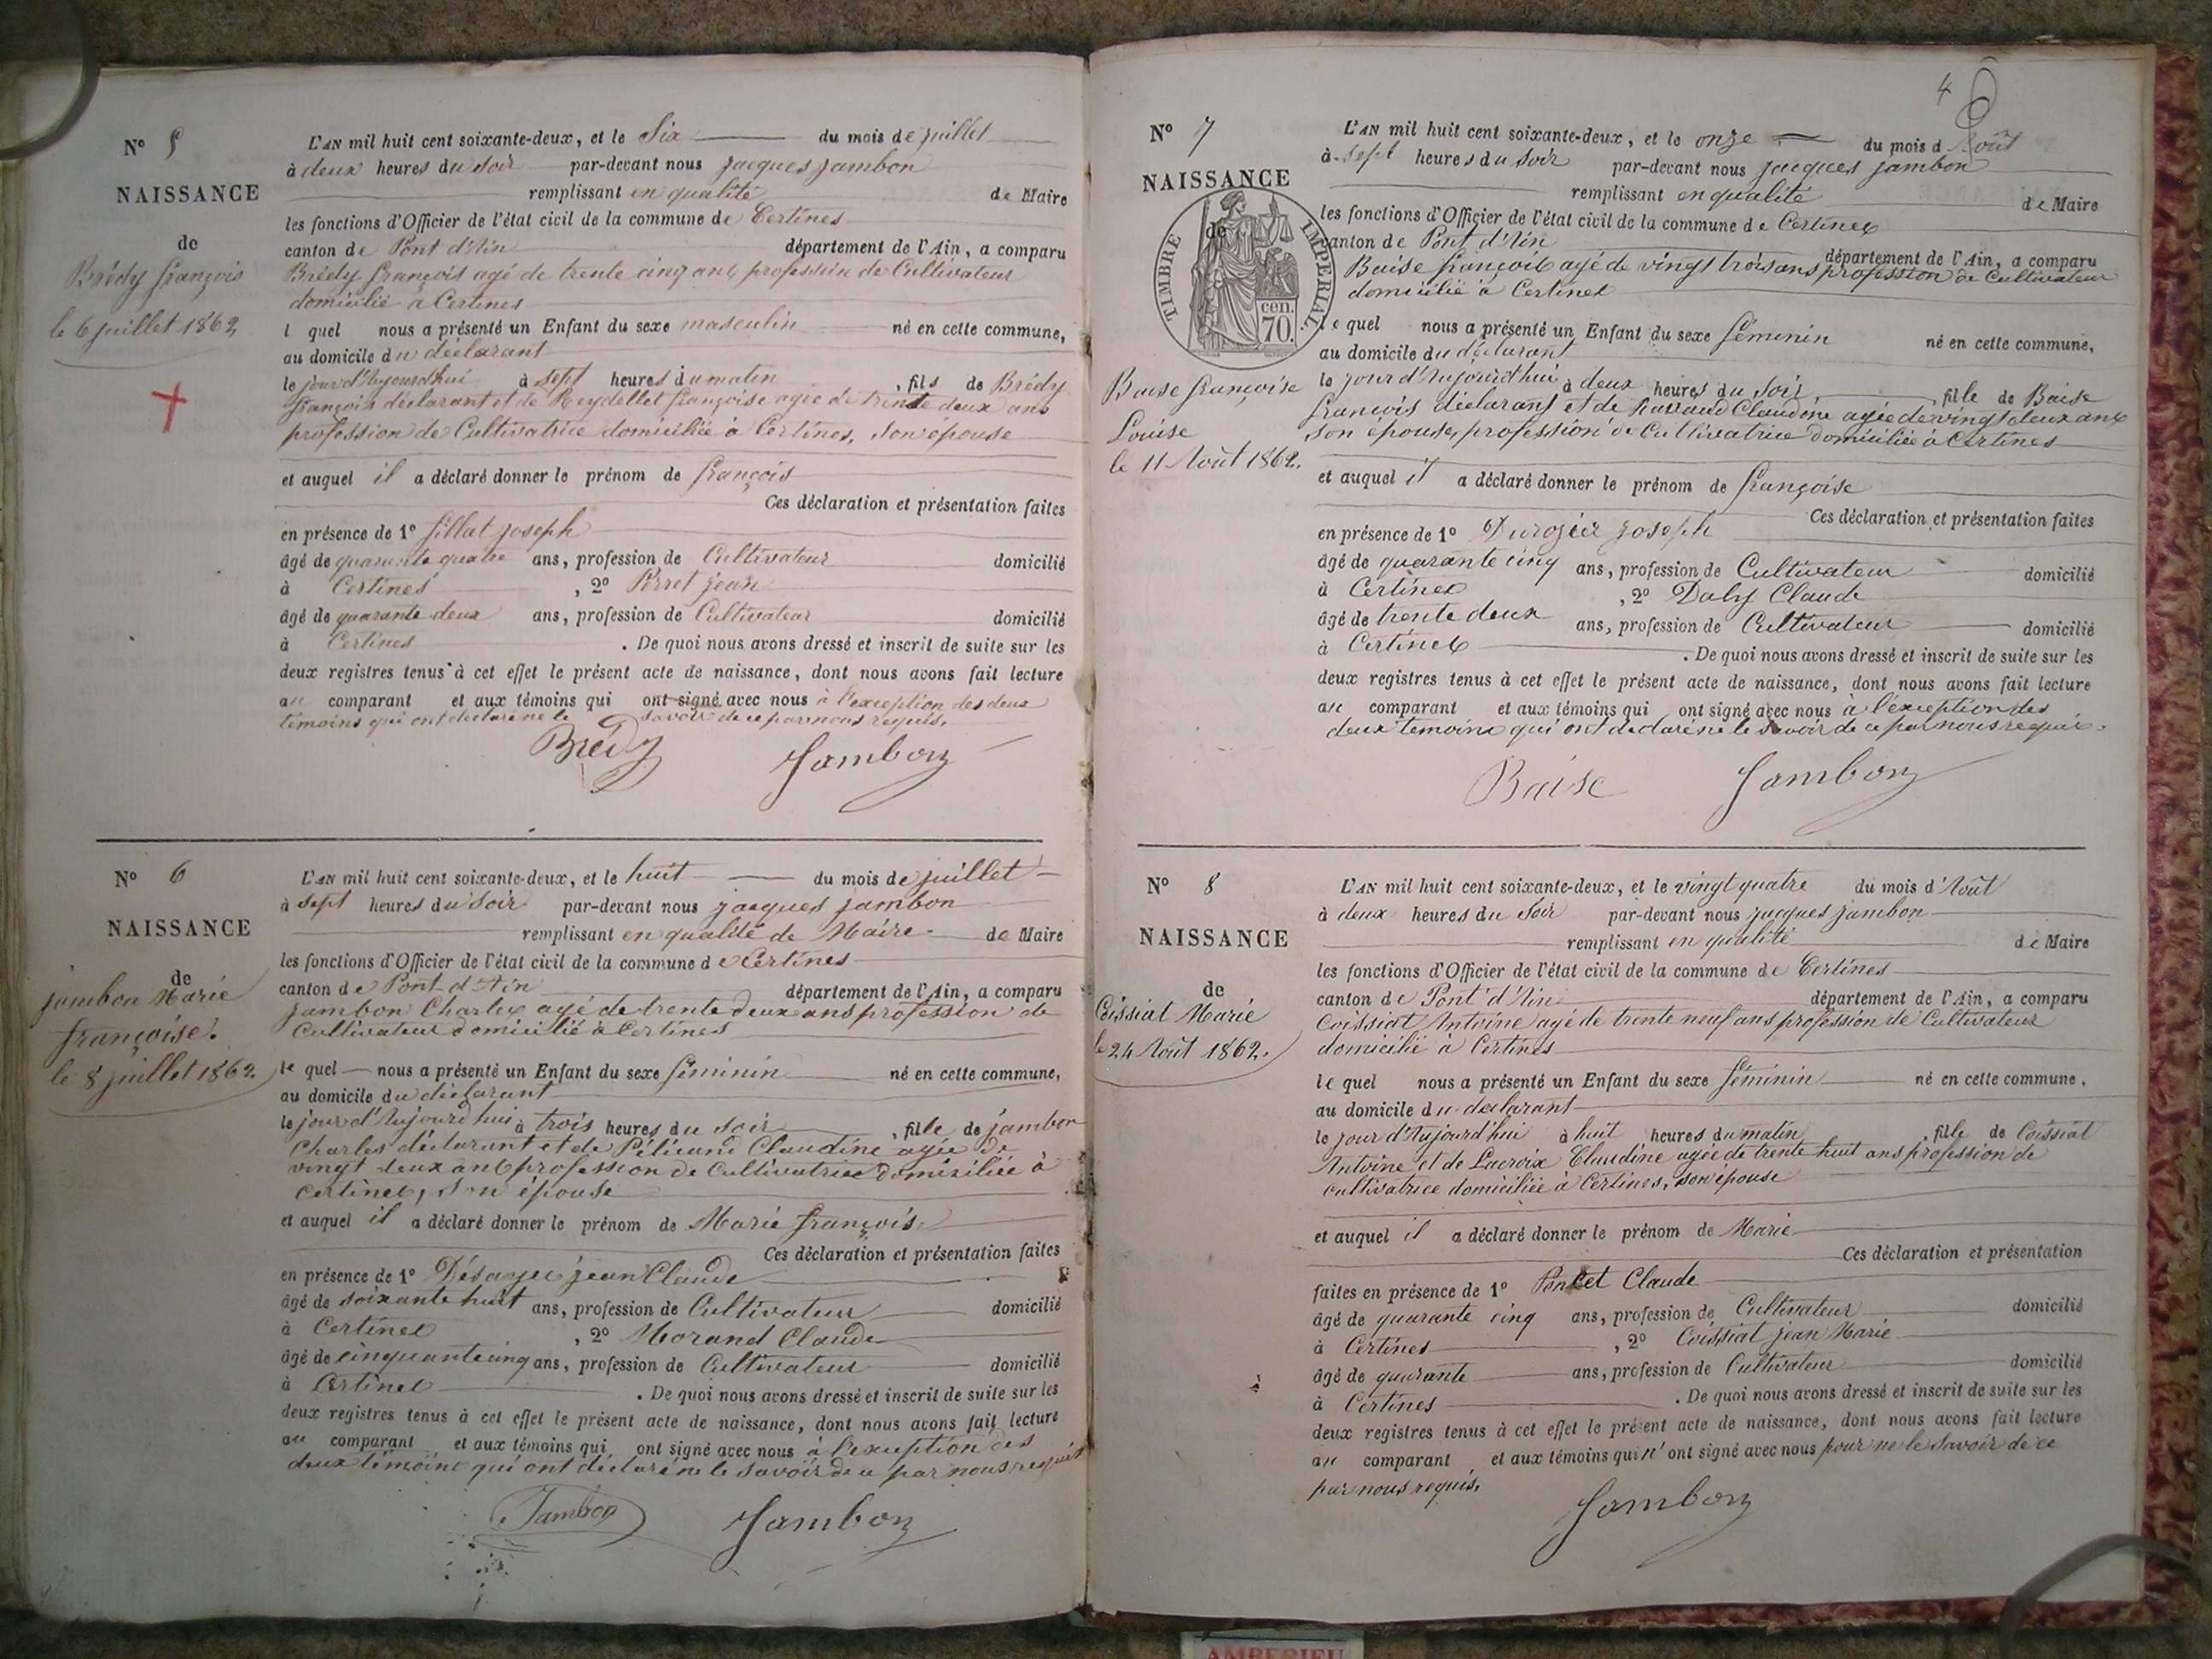 N° 5
NAISSANCE
de
Brédy françois
le 6 juillet 1862
L'AN mil huit cent soixante-deux, et le Six du mois de juillet
à deux heures du soir par-devant nous jacques jambon
remplissant en qualité de Maire
les fonctions d'Officier de l'état civil de la commune de Certines
canton de Pont d'Ain département de l'Ain, a comparu
Brédy françois agé de trente cinq ans profession de Cultivateur
domicilié à Certines
l quel nous a présenté un Enfant du sexe masculin né en cette commune,
au domicile du déclarant
le jour d'Aujourd'hui à sept heures du matin, fils de Brédy
françois déclarant et de Reydellet françoise agée de trente deux ans
profession de Cultivatrice domiciliée à Certines, son épouse
et auquel il a déclaré donner le prénom de françois
Ces déclaration et présentation faites
en présence de 1° fillat joseph
âgé de quarante quatre ans, profession de Cultivateur domicilié
à Certines, 2° Perret jean
âgé de quarante deux ans, profession de Cultivateur domicilié
à Certines. De quoi nous avons dressé et inscrit de suite sur les
deux registres tenus à cet effet le présent acte de naissance, dont nous avons fait lecture
au comparant et aux témoins qui ont signé avec nous à l'exception des deux
témoins qui ont déclaré ne le savoir de ce par nous requis.
Brédy Jambon
N° 6
NAISSANCE
de
jambon Marie
françoise.
le 8 juillet 1862
L'AN mil huit cent soixante-deux, et le huit du mois de juillet
à sept heures du soir par-devant nous jacques jambon
remplissant en qualité de Maire de Maire
les fonctions d'Officier de l'état civil de la commune de Certines
canton de Pont d'Ain département de l'Ain, a comparu
jambon Charles agé de trente deux ans profession de
Cultivateur domicilié à Certines
le quel nous a présenté un Enfant du sexe féminin né en cette commune,
au domicile du déclarant
le jour d'Aujourd'hui à trois heures du soir, fille de jambon
Charles déclarant et de Pélicand Claudine agée de
vingt deux ans profession de Cultivatrice domiciliée à
Certines, son épouse
et auquel il a déclaré donner le prénom de Marie françoise
Ces déclaration et présentation faites
en présence de 1° jean Claude
âgé de soixante huit ans, profession de Cultivateur domicilié
à Certines, 2° Morand Claude
âgé de cinquante cinq ans, profession de Cultivateur domicilié
à Certines. De quoi nous avons dressé et inscrit de suite sur les
deux registres tenus à cet effet le présent acte de naissance, dont nous avons fait lecture
au comparant et aux témoins qui ont signé avec nous à l'exception des
deux témoins qui ont déclaré ne le savoir de ce par nous requis
Jambon Jambon
4
N° 7
NAISSANCE
de
TIMBRE IMPERIAL.
cen.
70.
Baise françoise
Louise
le 11 Août 1862.
L'AN mil huit cent soixante-deux, et le onze du mois d'Août
à sept heures du soir par-devant nous jacques jambon
remplissant en qualité de Maire
les fonctions d'Officier de l'état civil de la commune de Certines
canton de Pont d'Ain département de l'Ain, a comparu
Baise françois agé de vingt trois ans profession de Cultivateur
domicilié à Certines
le quel nous a présenté un Enfant du sexe féminin né en cette commune,
au domicile du déclarant
le jour d'Aujourd'hui à deux heures du soir, fille de Baise
francois déclarant et de Claudine agée de vingt deux ans
son épouse, profession de Cultivatrice domiciliée à Certines
et auquel il a déclaré donner le prénom de françoise
Ces déclaration et présentation faites
en présence de 1° Durozier joseph
âgé de quarante cinq ans, profession de Cultivateur domicilié
à Certines, 2° Daly Claude
âgé de trente deux ans, profession de Cultivateur domicilié
à Certines. De quoi nous avons dressé et inscrit de suite sur les
deux registres tenus à cet effet le présent acte de naissance, dont nous avons fait lecture
au comparant et aux témoins qui ont signé avec nous à l'exception des
deux témoins qui ont déclaré ne le savoir de ce par nous requis.
Baise Jambon
N° 8
NAISSANCE
de
Coissiat Marie
le 24 Août 1862.
L'AN mil huit cent soixante-deux, et le vingt quatre du mois d'Août
à deux heures du soir par-devant nous jacques jambon
remplissant en qualité de Maire
les fonctions d'Officier de l'état civil de la commune de Certines
canton de Pont d'Ain département de l'Ain, a comparu
Coissiat Antoine agé de trente neuf ans profession de Cultivateur
domicilié à Certines
le quel nous a présenté un Enfant du sexe féminin né en cette commune,
au domicile du déclarant
le jour d'Aujourd'hui à huit heures du matin, fille de Coissiat
Antoine et de Lacroix Claudine agée de trente huit ans profession de
cultivatrice domiciliée à Certines, son épouse
et auquel il a déclaré donner le prénom de Marie
Ces déclaration et présentation
faites en présence de 1° Poncet Claude
âgé de quarante cinq ans, profession de Cultivateur domicilié
à Certines, 2° Coissiat jean Marie
âgé de quarante ans, profession de Cultivateur domicilié
à Certines. De quoi nous avons dressé et inscrit de suite sur les
deux registres tenus à cet effet le présent acte de naissance, dont nous avons fait lecture
au comparant et aux témoins qui n'ont signé avec nous pour ne le savoir de ce
par nous requis.
Jambon
AMBERIEU